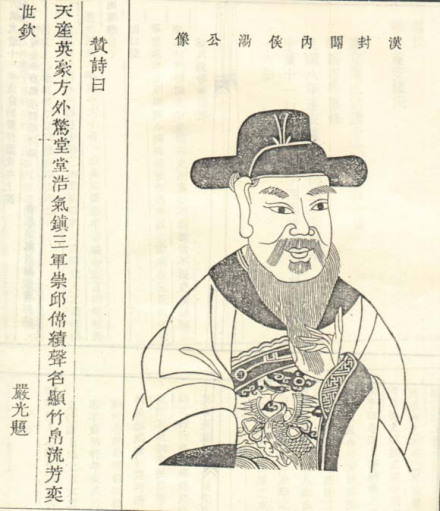 漢封關内侯湯公像
贊詩曰
天產英豪方外驚堂堂浩氣鎮三軍崇邱偉績聲名顯竹帛流芳奕
世欽
嚴光題